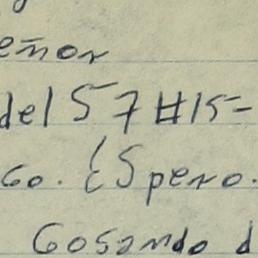 eñor
del 57 #15-
Go. ESpero.
Gosando d